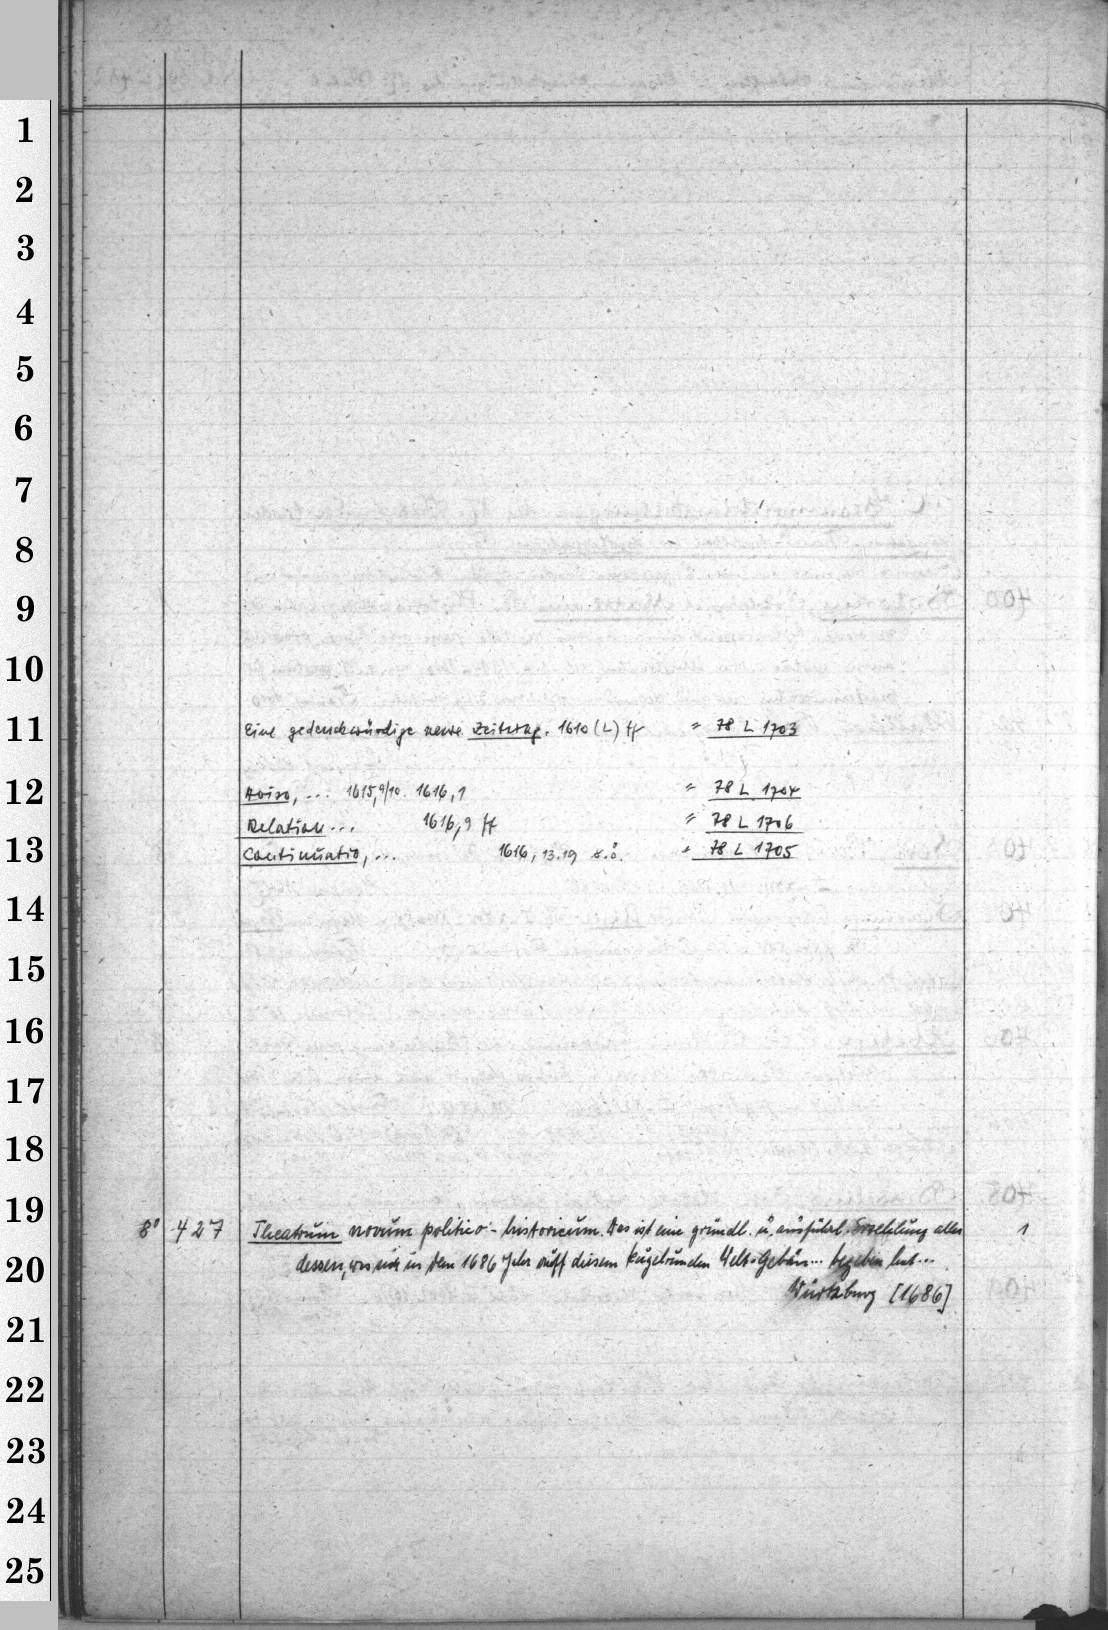 1
2
3
4
5
6
7
8
9
10
11
12
13
14
15
16
17
18
19
20
21
22
23
24
25
Eine gedenckwürdige newe Zeittung. 1610 (L) ff = 78 L 1703
Aviso, ... 1615,9/10. 1616,1 = 78 L 1704
Relation ... 1616,9 ff = 78 L 1706
Continuatio, ... 1616, 13.19 s.ö. = 78 L 1705
8° 427 Theatrum novum politico-historicum. Das ist eine gründl. u. ausführl. Erzehlung alles 1
dessen, was sich in dem 1686 Jahr auff diesem kugelrunden Welt-Gebäu... begeben hat...
Würtzburg [1686]